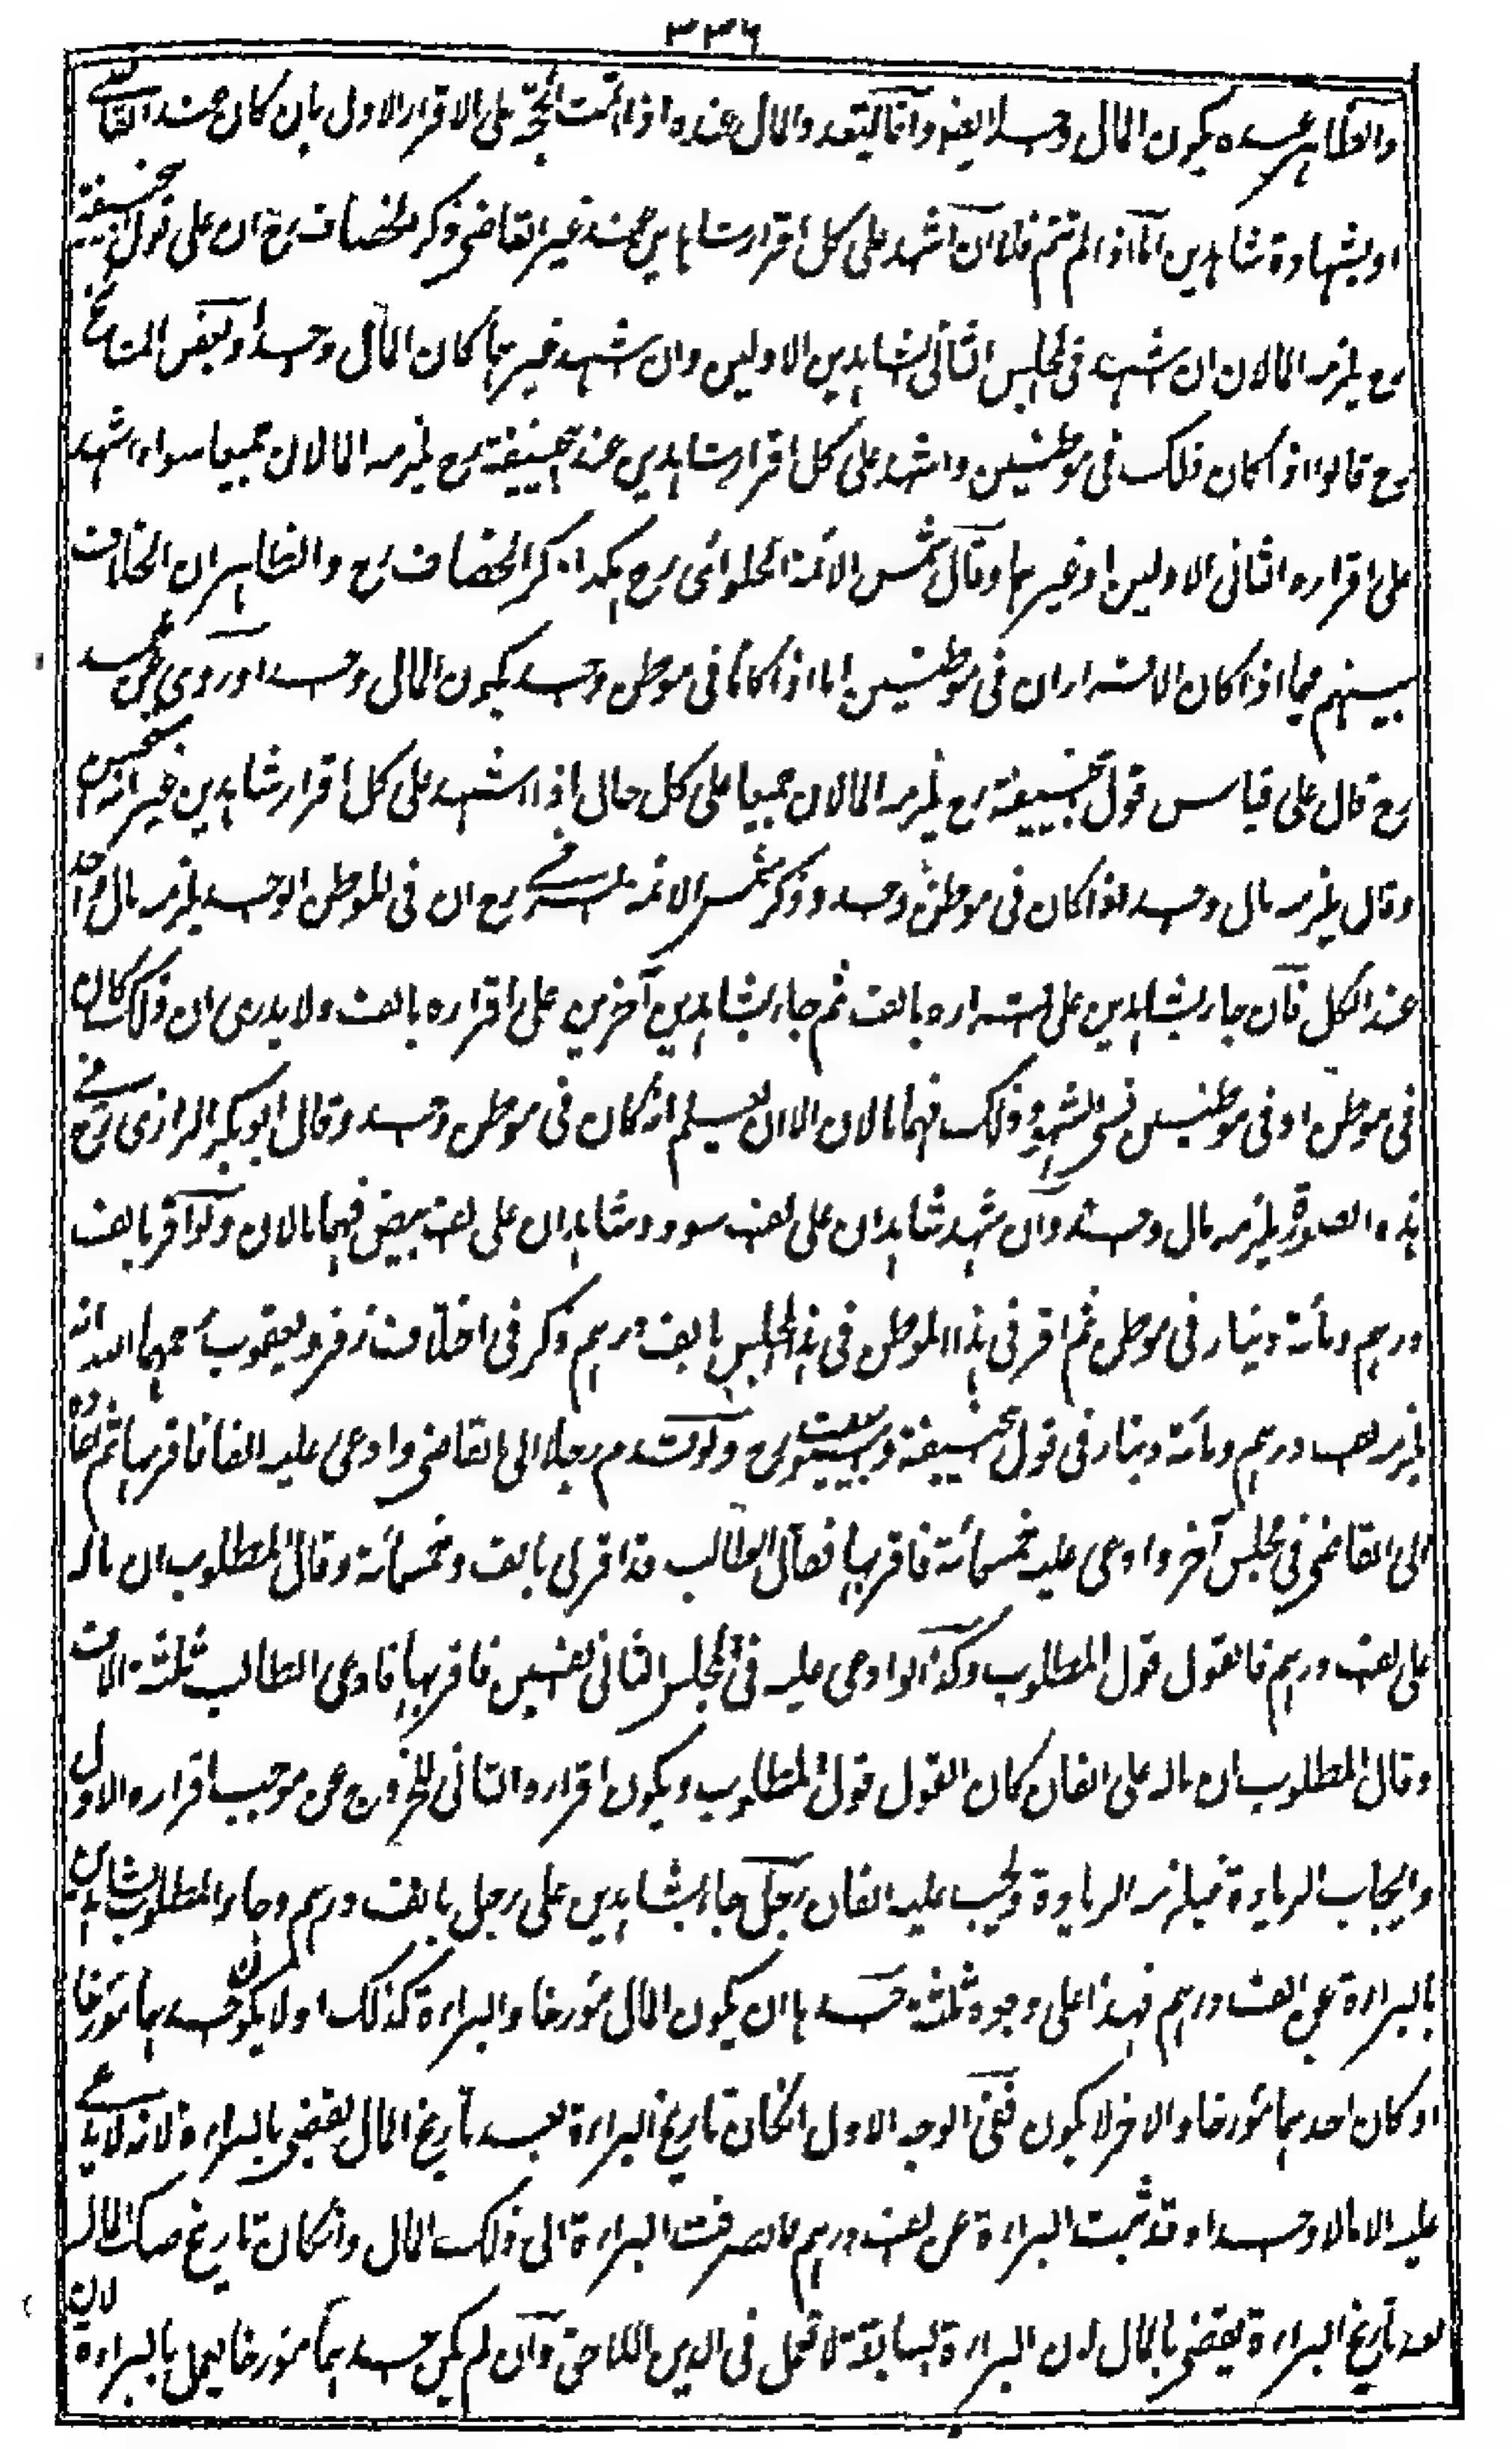 ٣٣٦
والظاهر عنده يكون المال واحدا ايضا وانما يتعدد المال عنده اذا تمت الحجة على الاقرار الاول بان كان عند القاضي
او بشهادة شاهدين اما اذا لم تتم فلا وان اشهد على كل اقرار شاهدين عند غير القاضي ذكر الخصاف رح ان على قول ابيحنيفة
رح يلزمه المالان ان شهد في المجلس الثاني الشاهدين الاولين وان شهد غيرهما كان المال واحدا وبعض المشايخ
رح قالوا اذا كان ذلك في موطنين واشهد على كل اقرار شاهدين عند ابيحنيفة رح يلزمه المالان جميعا سواء اشهد
على اقراره الثاني الاولين او غيرهما وقال شمس الائمة الحلوائي رح هكذا ذكر الخصاف رح والظاهر ان الخلاف
بينهم فيما اذا كان الاقراران في موطنين اما اذا كانا في موطن واحد يكون المال واحدا وروي عن محمد
رح قال على قياس قول ابيحنيفة رح يلزمه المالان جميعا على كل حال اذا اشهد على كل اقرار شاهدين غير انه استحسن
وقال يلزمه مال واحد اذا كان في موطن واحد وذكر شمس الائمة السرخسي رح ان في الموطن الواحد يلزمه مال واحد
عند الكل فان جاء بشاهدين على اقراره بالف ثم جاء بشاهدين آخرين على اقراره بالف ولا يدرى ان ذلك كان
في موطن او في موطنين فهما مالان الا ان يعلم انه كان في موطن واحد وقال ابو بكر الرازي رح في
هذه الصورة يلزمه مال واحد وان شهد شاهدان على الف سود وشاهدان على الف بيض فهما مالان ولو اقر بالف
درهم ومائة دينار في موطن ثم اقر في هذا الموطن في هذا المجلس بالف درهم ذكر في اختلاف زفر ويعقوب رحمهما الله انه
يلزمه الف درهم ومائة دينار في قول ابيحنيفة وابييوسف رح ولو قدم رجلا الى القاضي وادعى عليه الفا فاقر بها ثم اعاده
الى القاضي في مجلس آخر وادعى عليه خمسمائة فاقر بها فقال الطالب قد اقر لي بالف وخمسمائة وقال المطلوب ان ماله
على الف درهم فالقول قول المطلوب وكذا لو ادعى عليه في المجلس الثاني الفين فاقر بها فادعى الطالب ثلثة الاف
وقال المطلوب ان ماله على الفان كان القول قول المطلوب ويكون اقراره الثاني للخروج عن موجب اقراره الاول
وايجاب الزيادة فيلزمه الزيادة ويجب عليه الفان رجل جاء بشاهدين على رجل بالف درهم وجاء المطلوب بشاهدين
بالبراءة عن الف درهم فهذا على وجوه ثلثة احدها ان يكون المال مؤرخا والبراءة كذلك او لا يكون احدهما مؤرخا
او كان احدهما مؤرخا والاخر لا يكون ففي الوجه الاول انكان تاريخ البراءة بعد تاريخ المال يقضى بالبراءة لانه لا يدعي
عليه الا مالا واحدا وقد ثبت البراءة عن الف درهم فانصرفت البراءة الى ذلك المال وانكان تاريخ صك المال
بعد تاريخ البراءة يقضى بالمال لان البراءة السابقة لا تعمل في الدين اللاحق وان لم يكن احدهما مؤرخا يعمل بالبراءة لان